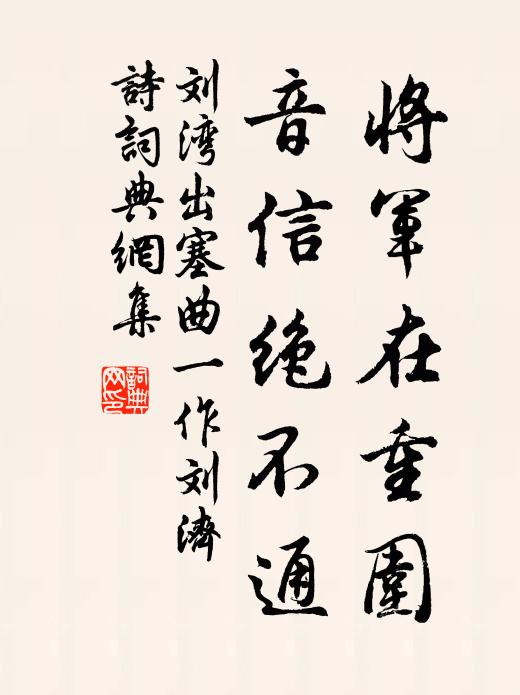 將軍在重圍
音信絶不通
刘湾出塞曲一作刘濟
詩詞典網集
詞典
网印